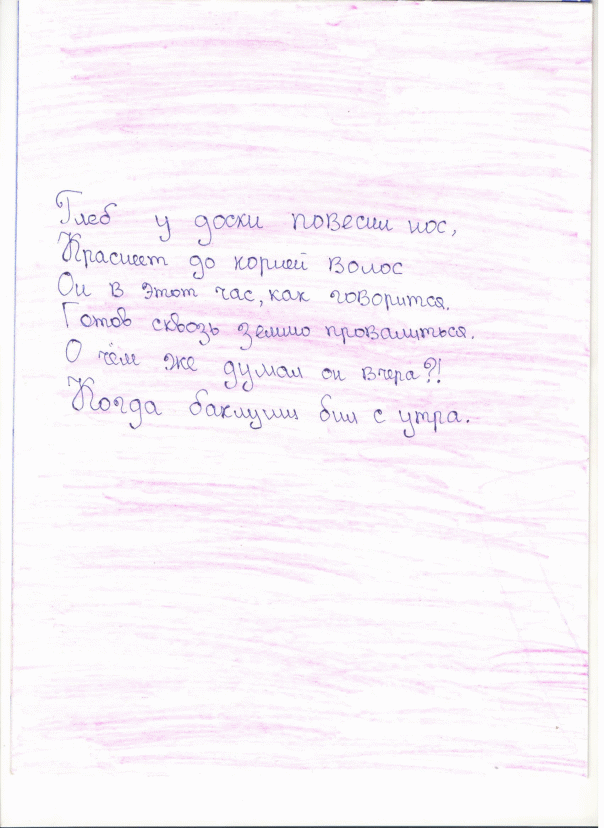 Глеб у доски повесил нос,
Краснеет до корней волос
Он в этот час, как говорится.
Готов сквозь землю провалиться.
О чём же думал он вчера?!
Когда баклуши бил с утра.